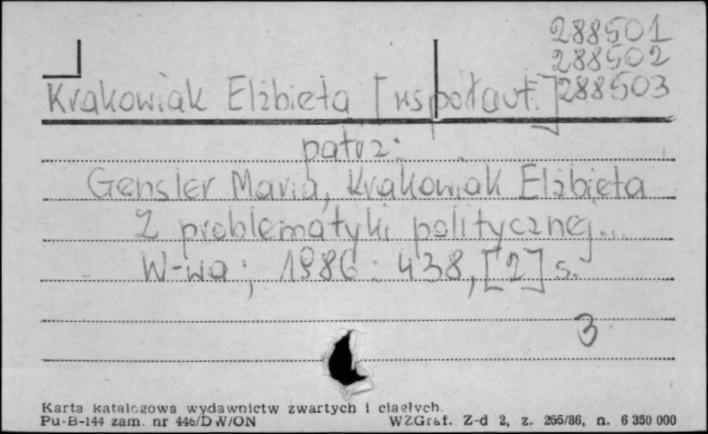 288501
288502
Krakowiak Elżbieta [współaut.] 288503
patrz:
Gensler Maria, Krakowiak Elżbieta
Z problematyki politycznej...
W-wa; 1986: 438, [2] s.
3
Karta katalogowa wydawnictw zwartych i ciągłych.
Pu-B-144 zam. nr 446/DW/ON WZGraf. Z-d 2, z. 265/86, n. 6 350 000